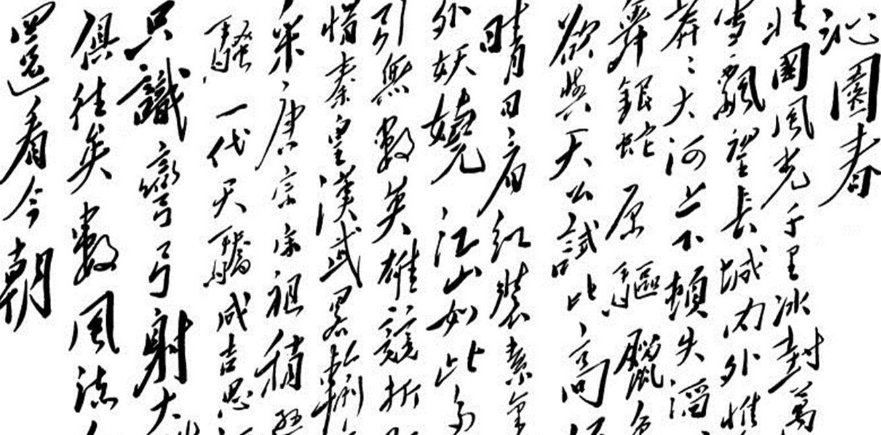 沁園春
北國風光千里冰封萬
雪飄望長城內外惟
莽〻大河上下頓失滔
舞銀蛇原驅臘
欲與天公試比高
晴日看紅裝素
外妖嬈江山如此多
引無數英雄競折
惜秦皇漢武畧輸
采唐宗宋祖稍
騷一代天驕成吉思
只識彎弓射大
俱往矣數風流
還看今朝